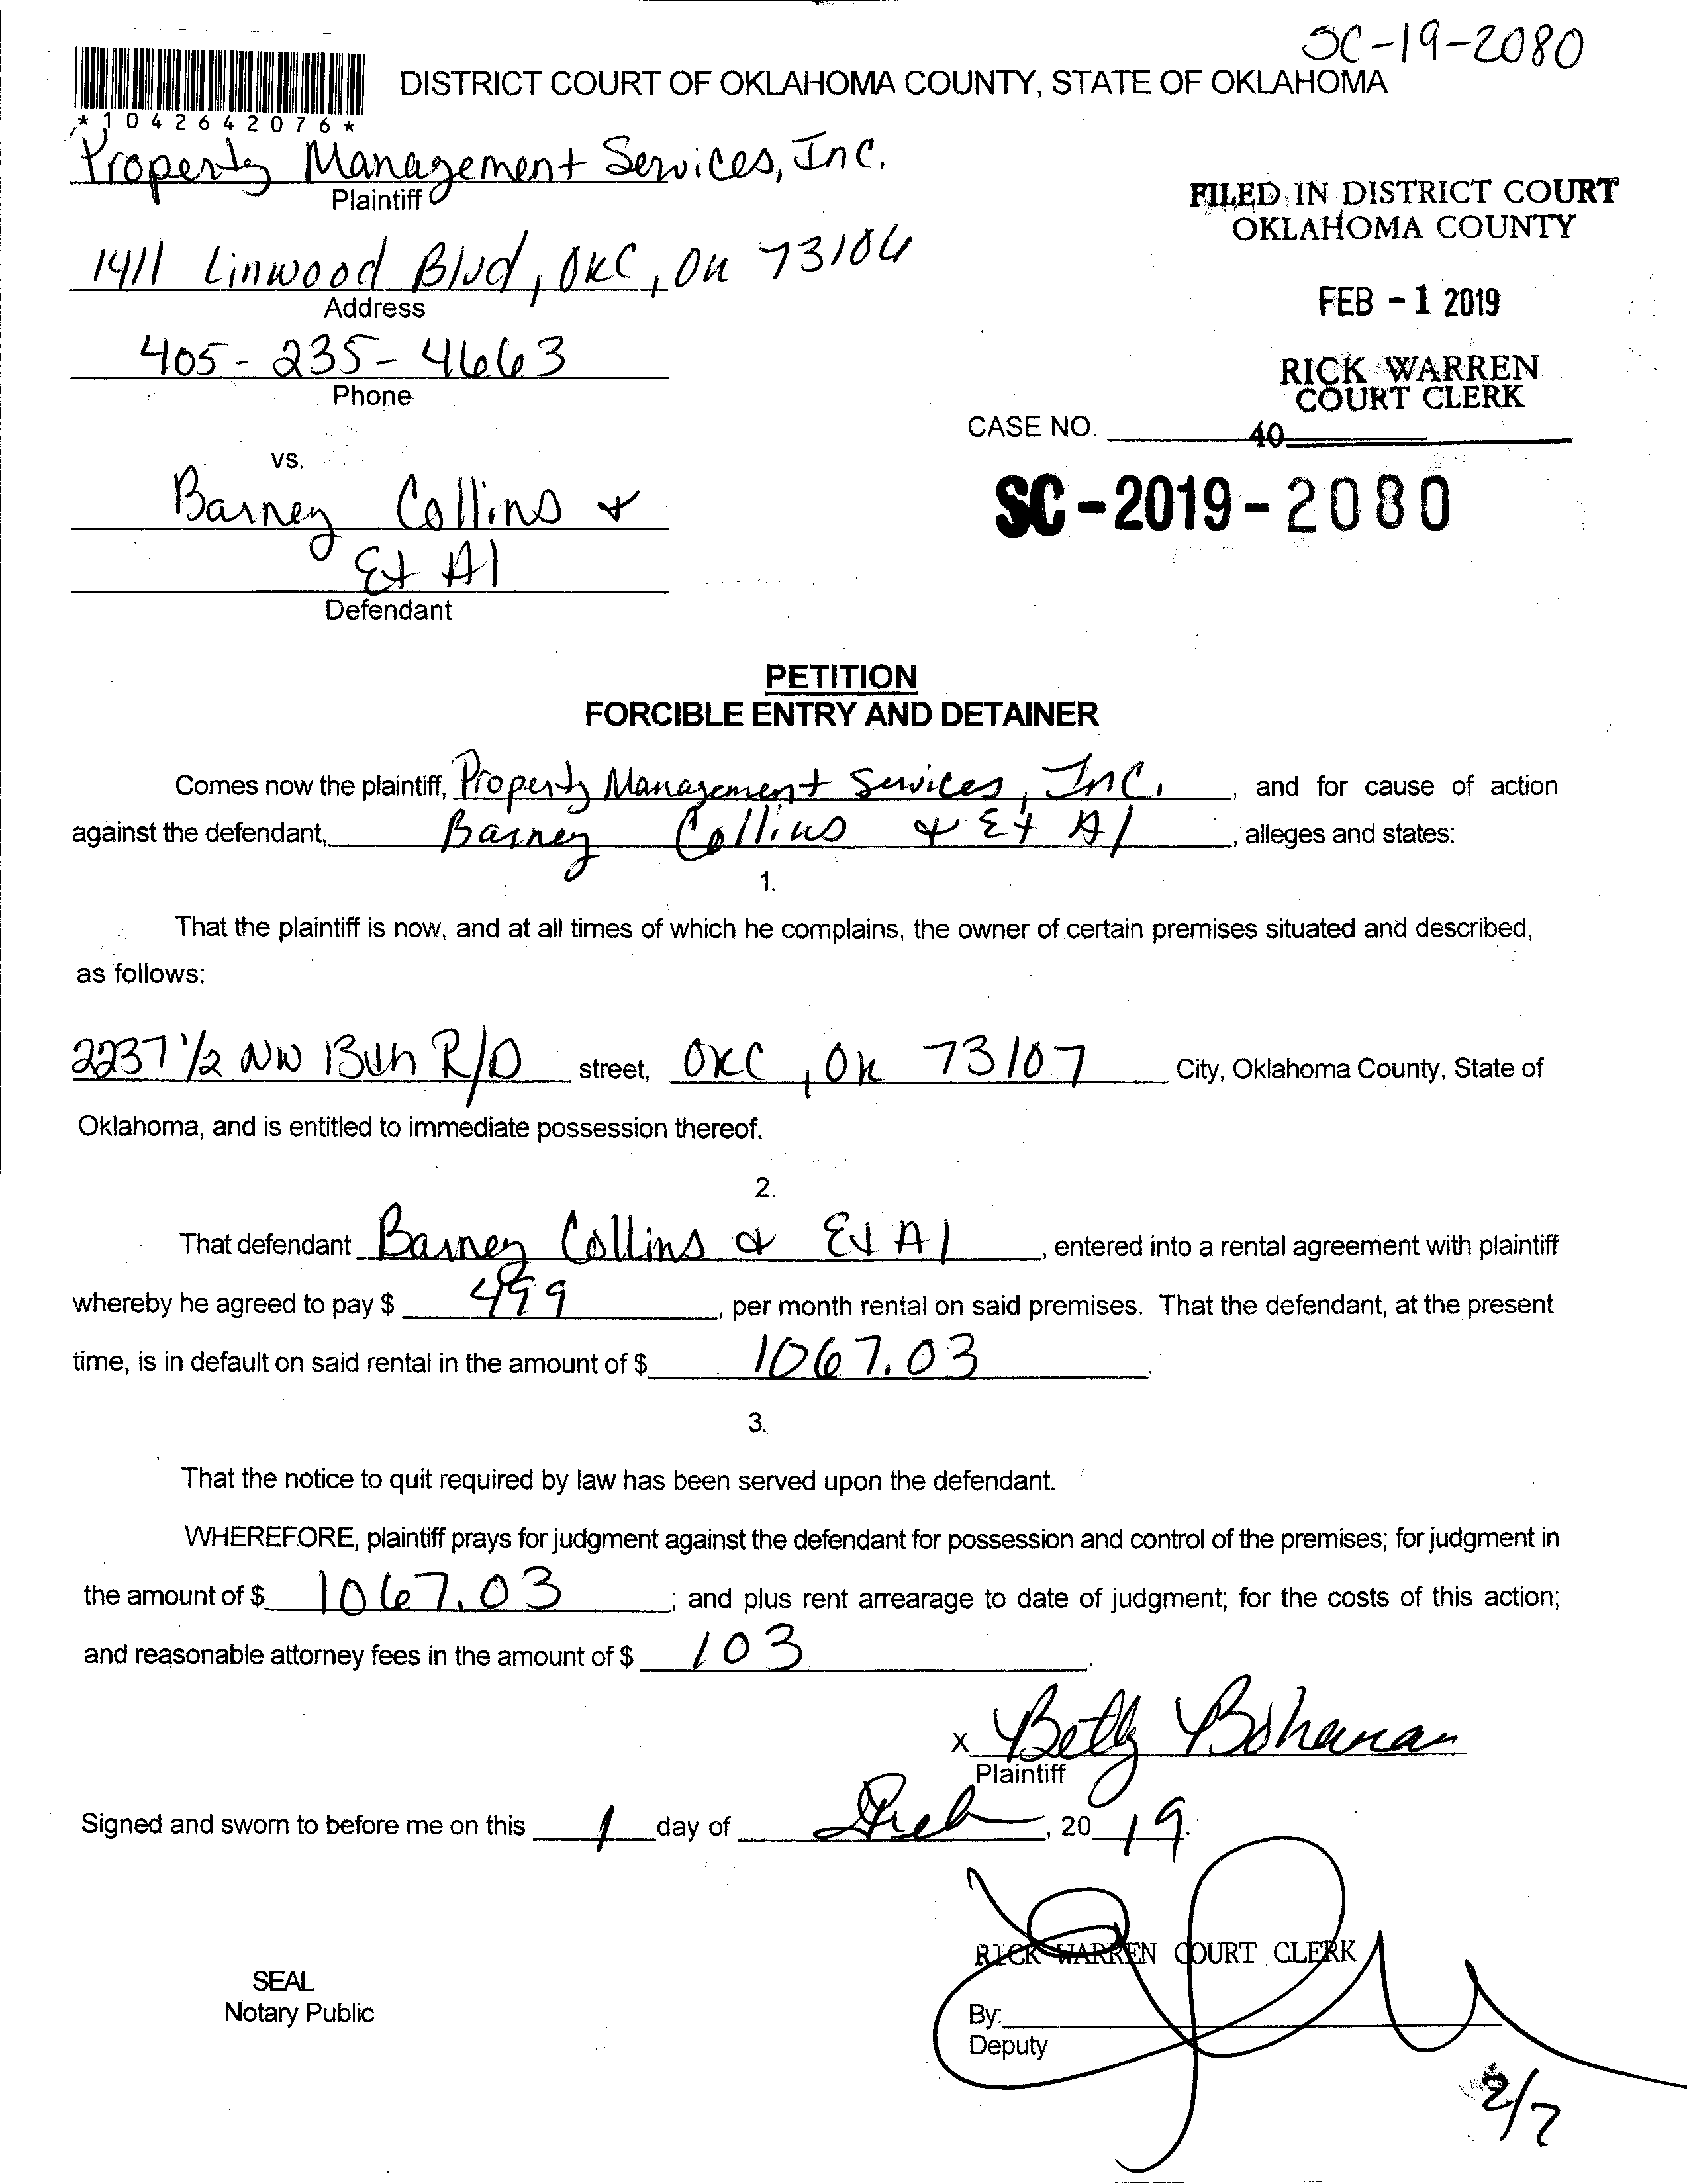 SC-19-2080
DISTRICT COURT OF OKLAHOMA COUNTY, STATE OF OKLAHOMA
*1042642076*
Property Management Services, Inc.
Plaintiff
1411 Linwood Blvd, OKC, OK 73106
Address
405-235-4663
Phone
FILED IN DISTRICT COURT
OKLAHOMA COUNTY
FEB -1 2019
RICK WARREN
COURT CLERK
CASE NO.
40
SC-2019-2080
vs.
Barney Collins &
Et Al
Defendant
PETITION
FORCIBLE ENTRY AND DETAINER
Comes now the plaintiff, Property Management Services, Inc. , and for cause of action
against the defendant, Barney Collins & Et Al , alleges and states:
1.
That the plaintiff is now, and at all times of which he complains, the owner of certain premises situated and described,
as follows:
2237 1/2 NW 13th R/D street, OKC, OK 73107 City, Oklahoma County, State of
Oklahoma, and is entitled to immediate possession thereof.
2.
That defendant Barney Collins & Et Al , entered into a rental agreement with plaintiff
whereby he agreed to pay $ 499 , per month rental on said premises. That the defendant, at the present
time, is in default on said rental in the amount of $ 1067.03 .
3.
That the notice to quit required by law has been served upon the defendant.
WHEREFORE, plaintiff prays for judgment against the defendant for possession and control of the premises; for judgment in
the amount of $ 1067.03 ; and plus rent arrearage to date of judgment; for the costs of this action;
and reasonable attorney fees in the amount of $ 103 .
x Betty Bohanan
Plaintiff
Signed and sworn to before me on this 1 day of Feb , 20 19.
RICK WARREN COURT CLERK
SEAL
Notary Public
By:
Deputy
2/7